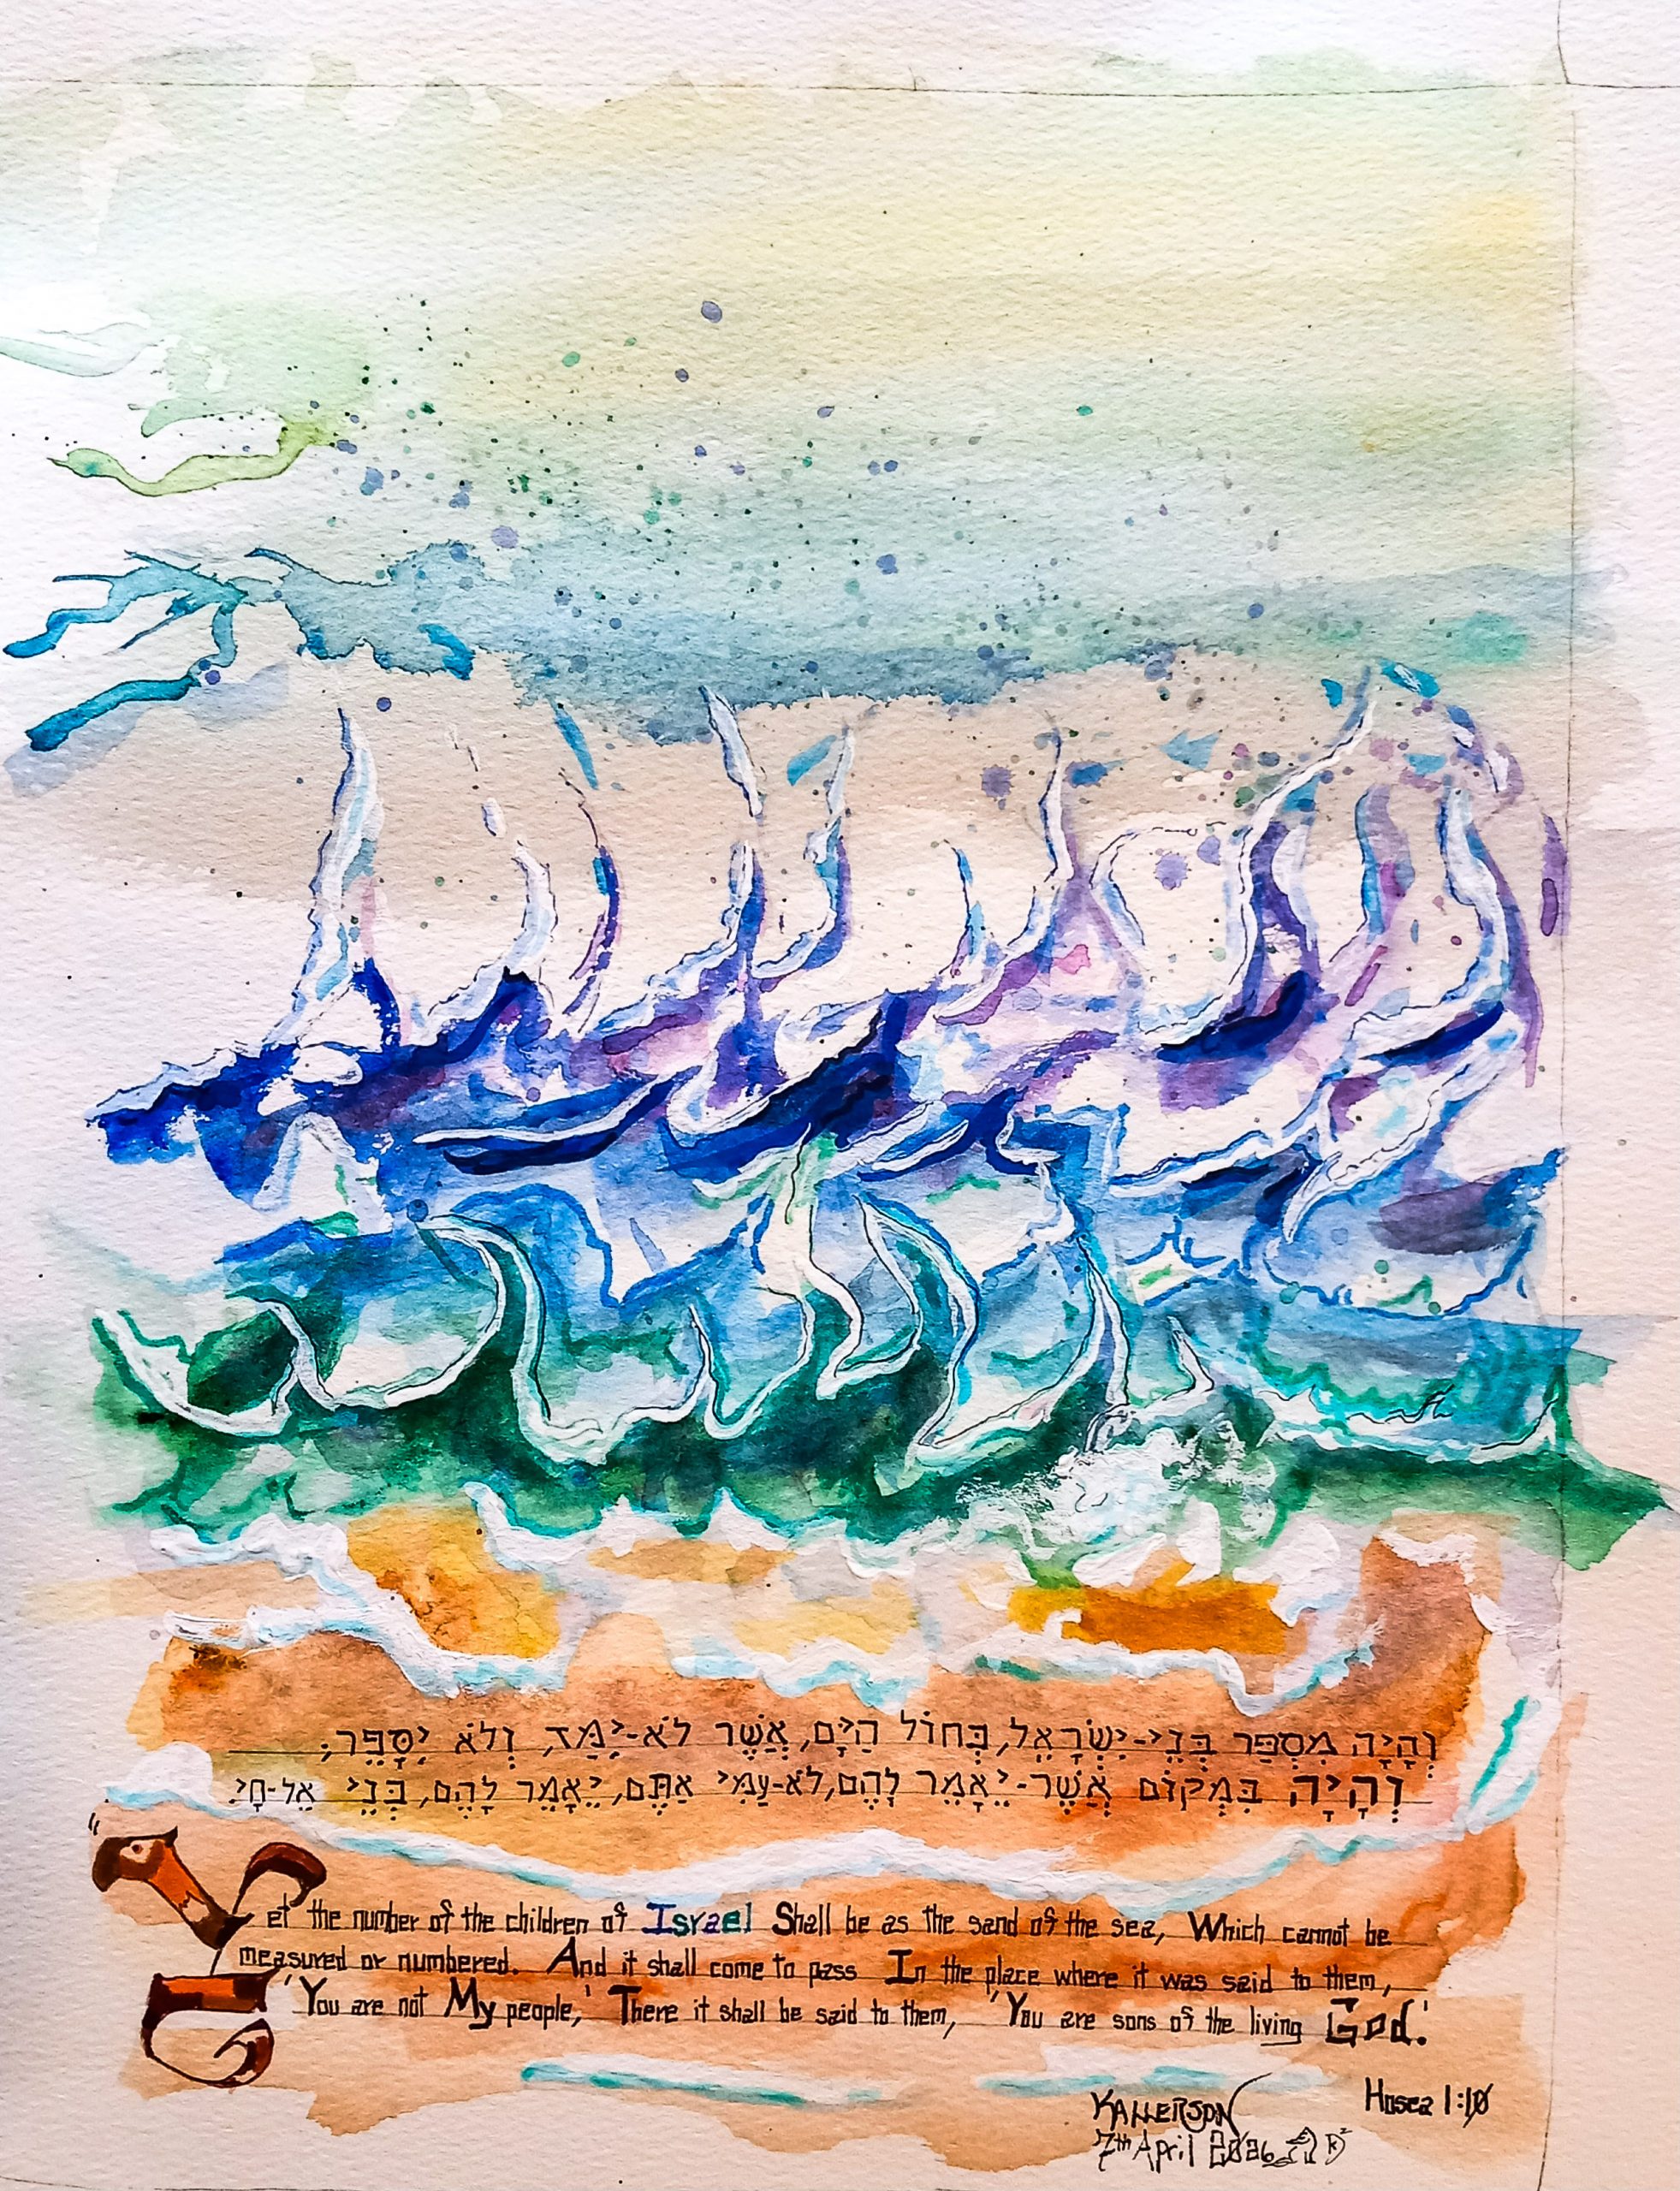 וְהָיָה מִסְפַּר בְּנֵי-יִשְׂרָאֵל, כְּחוֹל הַיָּם, אֲשֶׁר לֹא-יִמַּד, וְלֹא יִסָּפֵר;
וְהָיָה בִּמְקוֹם אֲשֶׁר-יֵאָמֵר לָהֶם, לֹא-עַמִּי אַתֶּם, יֵאָמֵר לָהֶם, בְּנֵי אֵל-חָי.
"Yet the number of the children of Israel Shall be as the sand of the sea, Which cannot be
measured or numbered. And it shall come to pass In the place where it was said to them,
'You are not My people,' There it shall be said to them, 'You are sons of the living God.'
Hosea 1:10
KALLERSON
7th April 2026